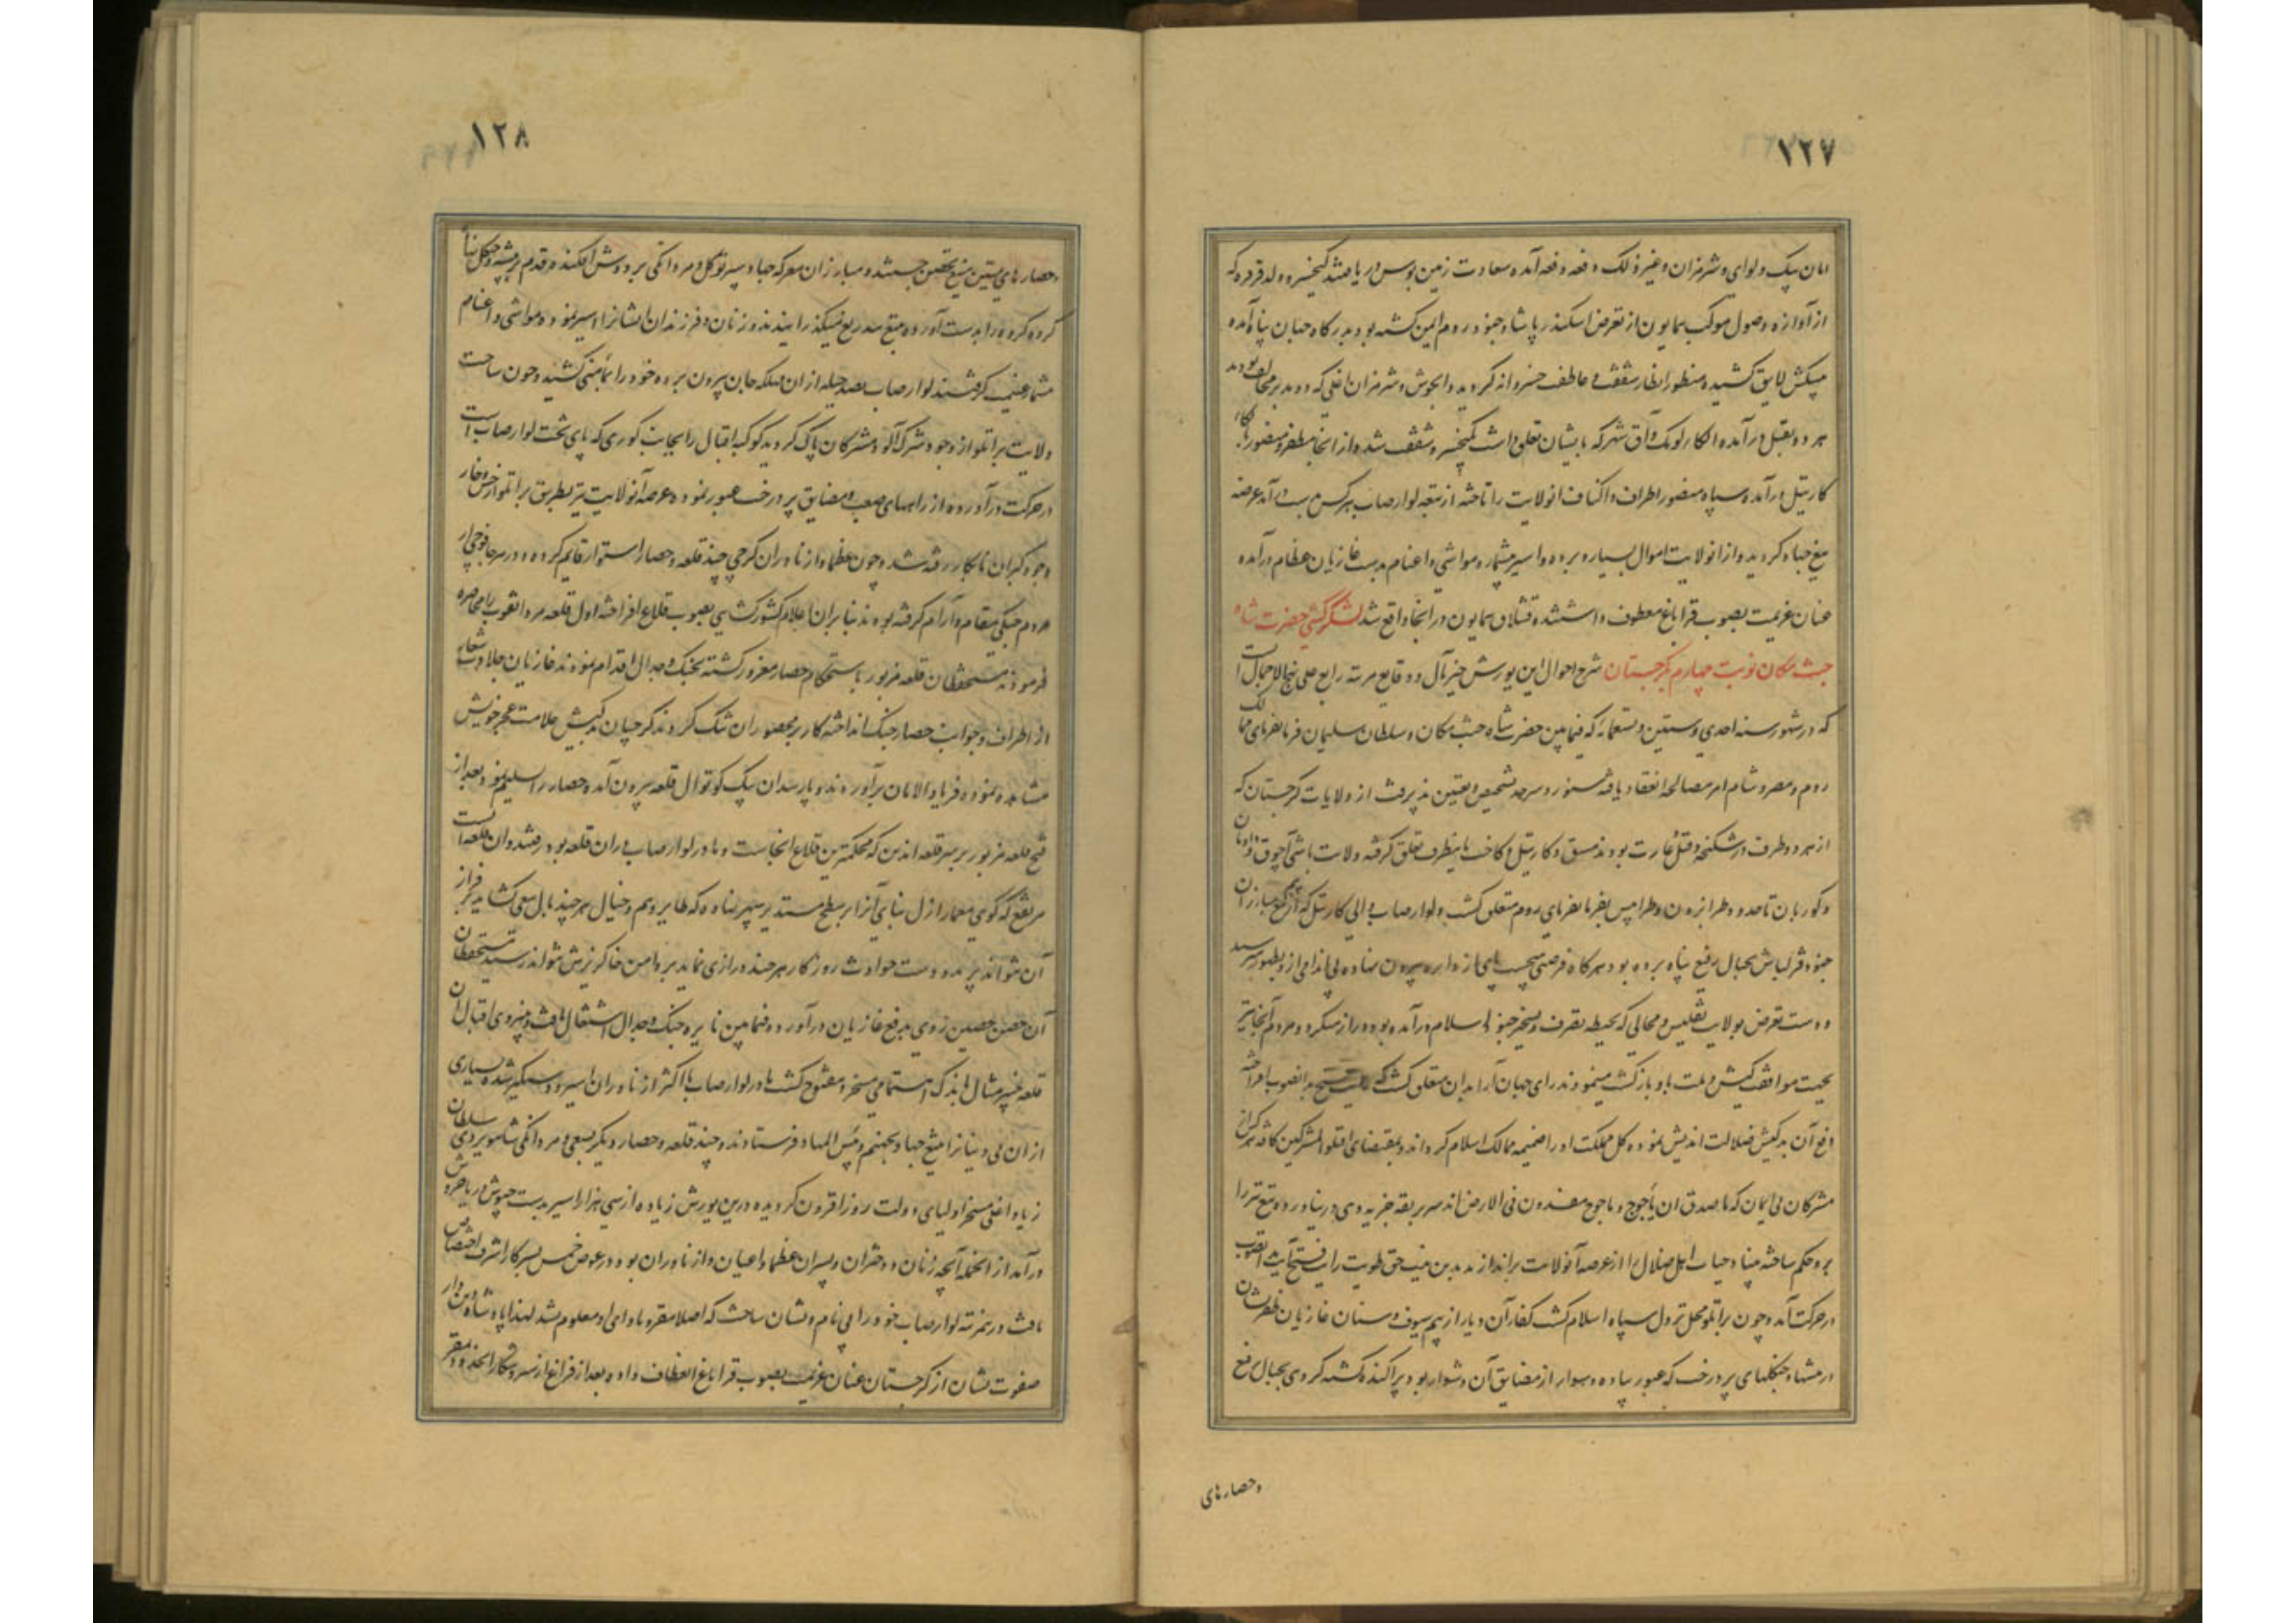 ۱۲۷
امان بیک ولوای و شرمزان و غیر ذلک دفعه دفعه آمده سعادت زمین بوس دریافتند کیخسرو ولد قرقره که
از آوازه وصول موکب همایون از تعرض اسکندر پاشا و جنود روم ایمن کشته بود بدرکاه جهان پناه آمده
پیشکش لایق کشیده منظور انظار شفقت و عاطفت خسروانه کردید و ابحوش و شرمزان اغلی که دو مدبر مخالف بودند
هر دو بقتل درآمده الکا تولک و آق شهر که بایشان تعلق داشت بکیخسرو شفقت شد و از انجا مظفر و منصور
کارتیل درآمده سپاه منصور اطراف و اکناف انولایت را تاخته از تبعه لوارصاب هرکس بدست آمد عرضه
تیغ جهاد کردید و از انولایت اموال بسیار و برده و اسیر بیشمار و مواشی و اغنام بدست غازیان عظام درآمده
عنان عزیمت بصوب قراباغ معطوف داشتند و قشلاق همایون در انجا واقع شد لشکرکشی حضرت شاه
جنت مکان نوبت چهارم بکرجستان شرح احوال این یورش خیر مآل و وقایع مرتبه رابع علی نهج الاجمال آنست
که در شهور سنه احدی و ستین و تسعمائه که فیمابین حضرت شاه جنت مکان و سلطان سلیمان فرمانفرمای ممالک
روم و مصر و شام امر مصالحه انعقاد یافته سنور و سرحد تشخیص و تعیین پذیرفت از ولایات کرجستان که
از هر دو طرف در شکنجه و قتل و غارت بودند مسق و کارتیل و کاخت باینطرف تعلق کرفته ولایت باشی آچوق و دادیان
و کوریان تا حدود طرابزون و طرابلس بفرمانفرمای روم متعلق کشت و لوارصاب والی کارتیل که از بیم تیغ مبارزان
جنود قزلباش بجبال رفیع پناه برده بود هرکاه فرصتی میجست پای از دایره بیرون نهاده بی اندامی از و بظهور میرسید
و دست تعرض بولایت تفلیس و محالی که بحیطه تصرف و تسخیر جنود اسلام درآمده بود دراز میکرد و مردم آنجا نیز
بجهت موافقت کیش و ملت باو بازکشت مینمودند رای جهان آرا بدان متعلق کشت که بدانصوب افراخته
دفع آن بدکیش ضلالت اندیش نموده کل مملکت او را ضمیمه ممالک اسلام کرداند و بمقتضای اقتلو المشرکین کافه
مشرکان بی ایمان که ماصدق ان یأجوج و مأجوج مفسدون فی الارض اند سر بربقه جزیه دهی در نیاورده تیغ تیز را
برو حکم ساخته بنیاد حیات اهل ضلال را از عرصه آنولایت براندازند بدین نیت حق طویت رایت فتح آیت بدانصوب
در حرکت آمده چون براتلو محل نزول سپاه اسلام کشت کفار آن دیار از بیم سیوف و سنان غازیان ظفرنشان
در بیشها و جنکلهای پردرخت که عبور پیاده و سوار از مضایق آن دشوار بود پراکنده کشته کروهی بجبال رفیع
و حصارهای
۱۲۸
و حصارهای متین منیع تحصن جستند و مبارزان معرکه جهاد سپر توکل و مردانکی بر دوش افکنده قدم در بیشه و جنکل نهاده
کروه کروه را بدست آورده بتیغ بیدریغ میکذرانیدند و زنان و فرزندان ایشانرا اسیر نموده مواشی و اغنام
بیشمار غنیمت کرفتند لوارصاب بصد حیله از ان مهلکه جان بیرون برده خود را بمأمنی کشید و چون ساحت
ولایت براتلو از وجود شرک آلود مشرکان پاک کردید کوکبه اقبال را بجانب کوری که پای تخت لوارصاب است
در حرکت درآورده از راههای صعب و مضایق پردرخت عبور نموده عرصه آنولایت نیز بطریق براتلو از خس و خار
وجود کبران نابکار رفته شد و چون عظما و ازناوران کرجی چند قلعه و حصار استوار قایم کرده و در هر جا فوجی از
مردم جنکی مقام و آرام کرفته بودند بنابران اعلام کشورکشایی بصوب قلاع افراخته اول قلعه مرداتقوب را محاصره
فرمودند مستحفظان قلعه مزبور باستحکام حصار مغرور کشته بجنک و جدال اقدام نمودند غازیان جلادت شعار
از اطراف و جوانب حصار جنک انداخته کار بر محصوران تنک کردند کرجیان بدکیش علامت عجز خویش
مشاهده نموده فریاد الامان برآوردند و پارسدان بیک کوتوال قلعه بیرون آمده حصار را تسلیم نمود و بعد از
فتح قلعه مزبور بر سر قلعه اندین که محکمترین قلاع انجاست و مادر لوارصاب در ان قلعه بود رفتند و ان قلعه ایست
مرتفع که کویی معمار ازل بنای آنرا بر سطح مستدیر سپهر نهاده که طایر وهم و خیال هرچند بال سعی کشاید بر فراز
آن نتواند پرید و دست حوادث روزکار هرچند درازی نماید بر دامن خاکریزش نتواند رسید مستحفظان
آن حصن حصین روی بدفع غازیان درآورده فیمابین نایره جنک و جدال اشتعال یافت و بنیروی اقبال آن
قلعه خیبر مثال باندک اهتمامی مسخر و مفتوح کشت مادر لوارصاب با اکثر ازناوران اسیر و دستکیر شده بسیاری
از ان بی دینانرا بتیغ جهاد بجهنم و بئس المهاد فرستادند و چند قلعه و حصار دیکر بسعی و مردانکی شاهویردی سلطان
زیاد اغلی مسخر اولیای دولت روزافزون کردیده درین یورش زیاده از سی هزار اسیر بدست جیوش دریا خروش
درآمد از انجمله آنچه زنان و دختران و پسران عظما و اعیان و ازناوران بود در عوض خمس بسرکار اشرف اختصاص
یافت و درین مرتبه لوارصاب خود را بی نام و نشان ساخت که اصلا مقر و ماوای او معلوم نشد لهذا پادشاه دین دار
صفوت نشان از کرجستان عنان عزیمت بصوب قراباغ انعطاف داده بعد از فراغ از سیر و شکار انحدود بمقر